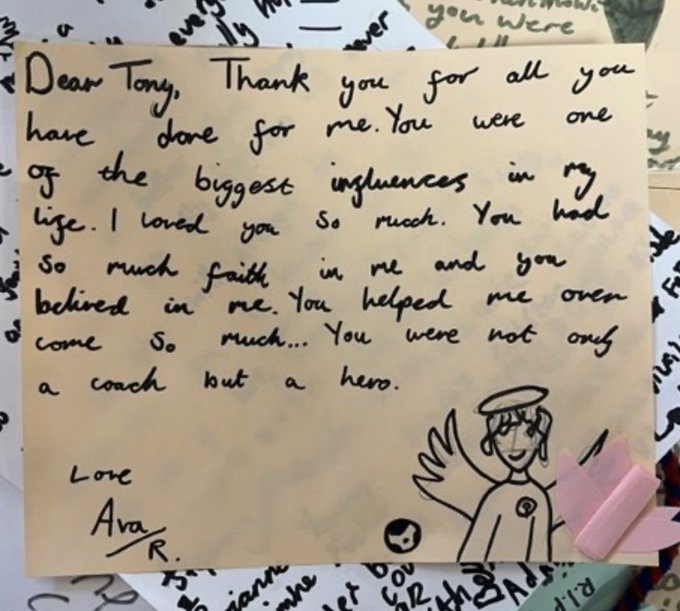 Dear Tony, Thank you for all you
have done for me. You were one
of the biggest influences in my
life. I loved you so much. You had
so much faith in me and you
belived in me. You helped me over
come so much... You were not only
a coach but a hero.
Love
Ava
R.
you were
R.I.P